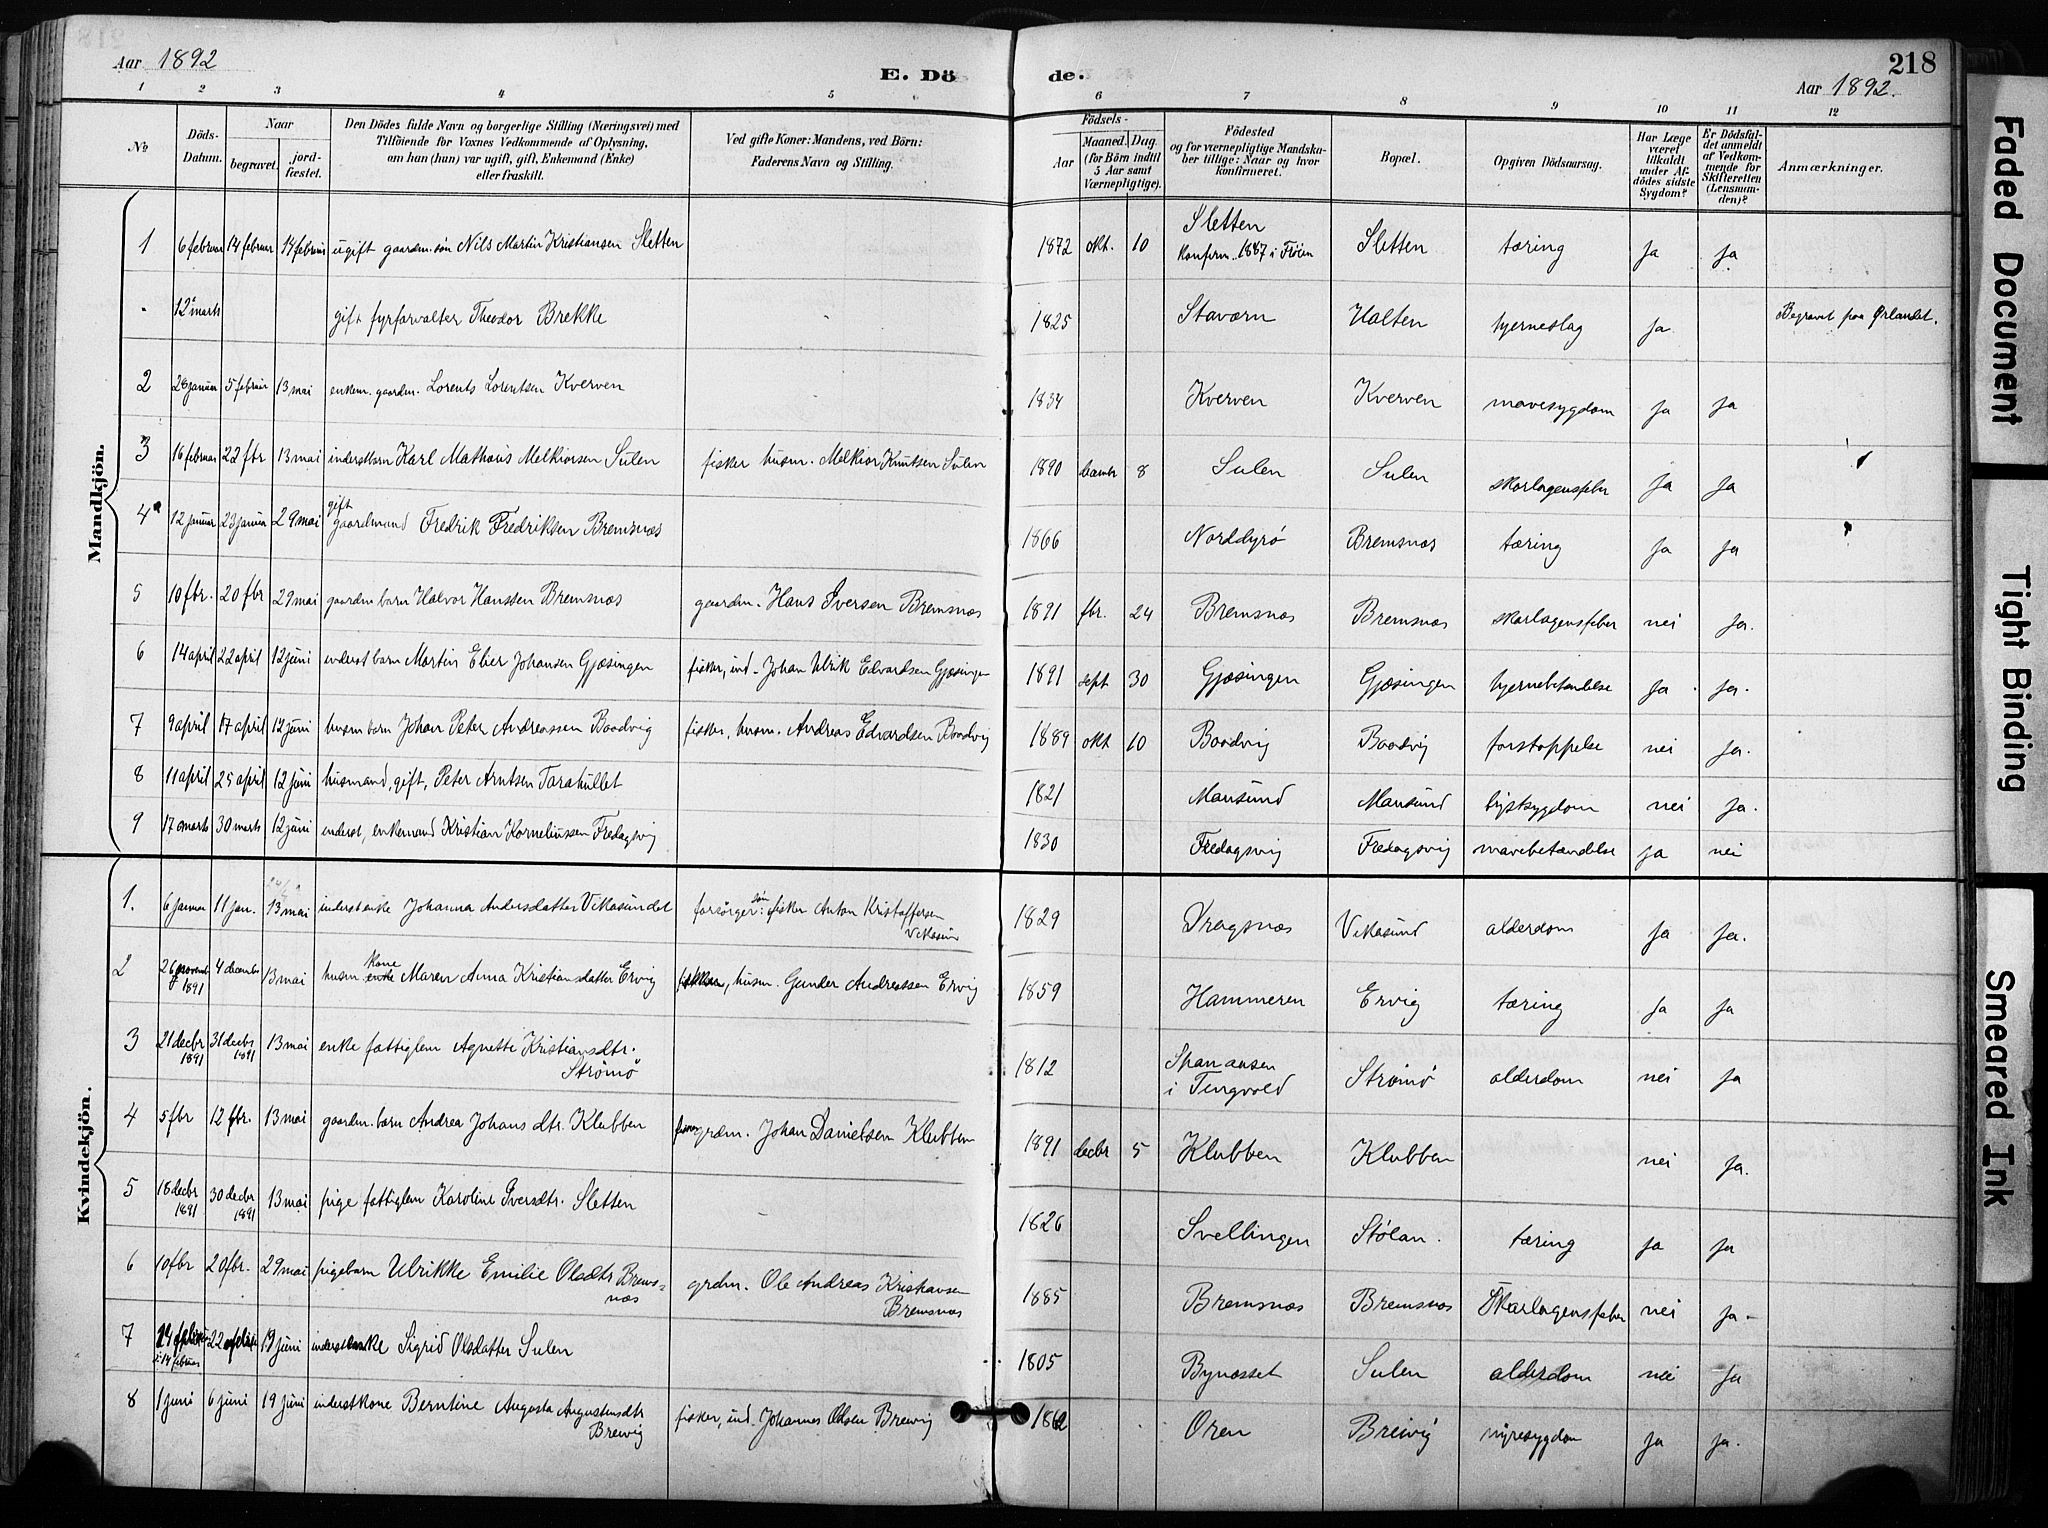 Aar 1892
E. Döde.
218
Aar 1892.
1 2 3 4 5 6 7 8 9 10 11 12
No
Döds-Datum.
Naar
begravet.
jord-fæstet.
Den Dödes fulde Navn og borgerlige Stilling (Næringsvei) med
Tilföiende for Voxnes Vedkommende af Oplysning,
om han (hun) var ugift, gift, Enkemand (Enke)
eller fraskilt.
Ved gifte Koner: Mandens, ved Börn:
Faderens Navn og Stilling.
Födsels-
Aar
Maaned. Dag.
(for Börn indtil
5 Aar samt
Værnepligtige).
Födested
og for værnepligtige Mandska-
ber tillige: Naar og hvor
konfirmeret.
Bopæl.
Opgiven Dödsaarsag.
Har Læge
været
tilkaldt
under Af-
dödes sidste
Sygdom?
Er Dödsfal-
det anmeldt
af Vedkom-
mende for
Skifteretten
(Lensman-
den)?
Anmærkninger.
Mandkjön.
1 6 februar 14 februar 14 februar ugift gaardm. søn Nils Martin Kristiansen Sletten 1872 okt. 10 Sletten konfirm. 1887 i Frøien Sletten tæring Ja Ja
" 12 marts gift fyrforvalter Theodor Brekke 1825 Staværn Halten hjerneslag Ja Begravet paa Ørlandet.
2 28 januar 5 februar 13 mai enkem. gaardm. Lorents Lorentsen Kverven 1834 Kverven Kverven mavesygdom Ja Ja
3 16 februar 22 fbr 13 mai inderstbarn Karl Mathæus Melkiorsen Sulen fisker husm. Melkior Knutsen Sulen 1890 decembr 8 Sulen Sulen skarlagensfeber Ja Ja
4 12 januar 23 januar 29 mai gift gaardmand Fredrik Fredriksen Bremsnæs 1866 Norddyrø Bremsnæs tæring Ja Ja
5 10 fbr. 20 fbr 29 mai gaardm. barn Halvor Hanssen Bremsnæs gaardm. Hans Iversen Bremsnæs 1891 fbr. 24 Bremsnæs Bremsnæs skarlagensfeber nei Ja.
6 14 april 22 april 12 juni inderst barn Martin Elier Johansen Gjæsingen fisker, ind. Johan Ulrik Edvardsen Gjæsingen 1891 sept 30 Gjæsingen Gjæsingen hjernebetændelse Ja Ja.
7 9 april 17 april 12 juni husm. barn Johan Peter Andreassen Baadvig fisker, husm. Andreas Edvardsen Baadvig 1889 okt 10 Baadvig Baadvig forstoppelse nei Ja.
8 11 april 25 april 12 juni husmand, gift, Peter Arntsen Tarahullet 1821 Mausund Mausund brystsygdom nei Ja.
9 17 marts 30 marts 12 juni inderst, enkemand Kristian Korneliussen Fredagsvig 1830 Fredagsvig Fredagsvig mavebetændelse Ja nei
Kvindekjön.
1. 6 januar 11 jan. 13 mai inderst enke Johanna Andersdatter Vikasundet forsørger: søn fisker Anton Kristoffersen Vikasun 1829 Dragsnæs Vikasund alderdom Ja Ja.
2 26 novemb 1891 4 decembr 13 mai husm kone Maren Anna Kristiansdatter Ervig fisker, husm. Gunder Andreassen Ervig 1859 Hammeren Ervig tæring Ja Ja
3 21 decbr 1891 31 decbr 1891 13 mai enke fattiglem Agnette Kristiansdtr. Strømø 1812 i Tingvold Strømø alderdom nei Ja
4 5 fbr 12 fbr. 13 mai gaardm. barn Andrea Johansdtr. Klubben grdm. Johan Danielsen Klubben 1891 decbr 5 Klubben Klubben nei Ja.
5 18 decbr 1891 30 decbr 1891 13 mai pige fattiglem Karoline Iversdtr. Sletten 1826 Svellingen Stølan. tæring Ja Ja
6 10 fbr 20 fbr. 29 mai pigebarn Ulrikke Emilie Olsdtr Bremsnæs grdm. Ole Andreas Kristiansen Bremsnæs 1885 Bremsnæs Bremsnæs Skarlagensfeber nei Ja
7 14 februar 22 19 juni inderstenke Sigrid Olsdatter Sulen 1805 Bynæsset Sulen alderdom nei Ja
8 1 juni 6 juni 19 juni inderstkone Berntine Augusta Augustinsdtr Breivig fisker, ind. Johannes Olsen Breivig 1862 Oren Breivig nyresygdom Ja Ja.
Faded Document
Tight Binding
Smeared Ink